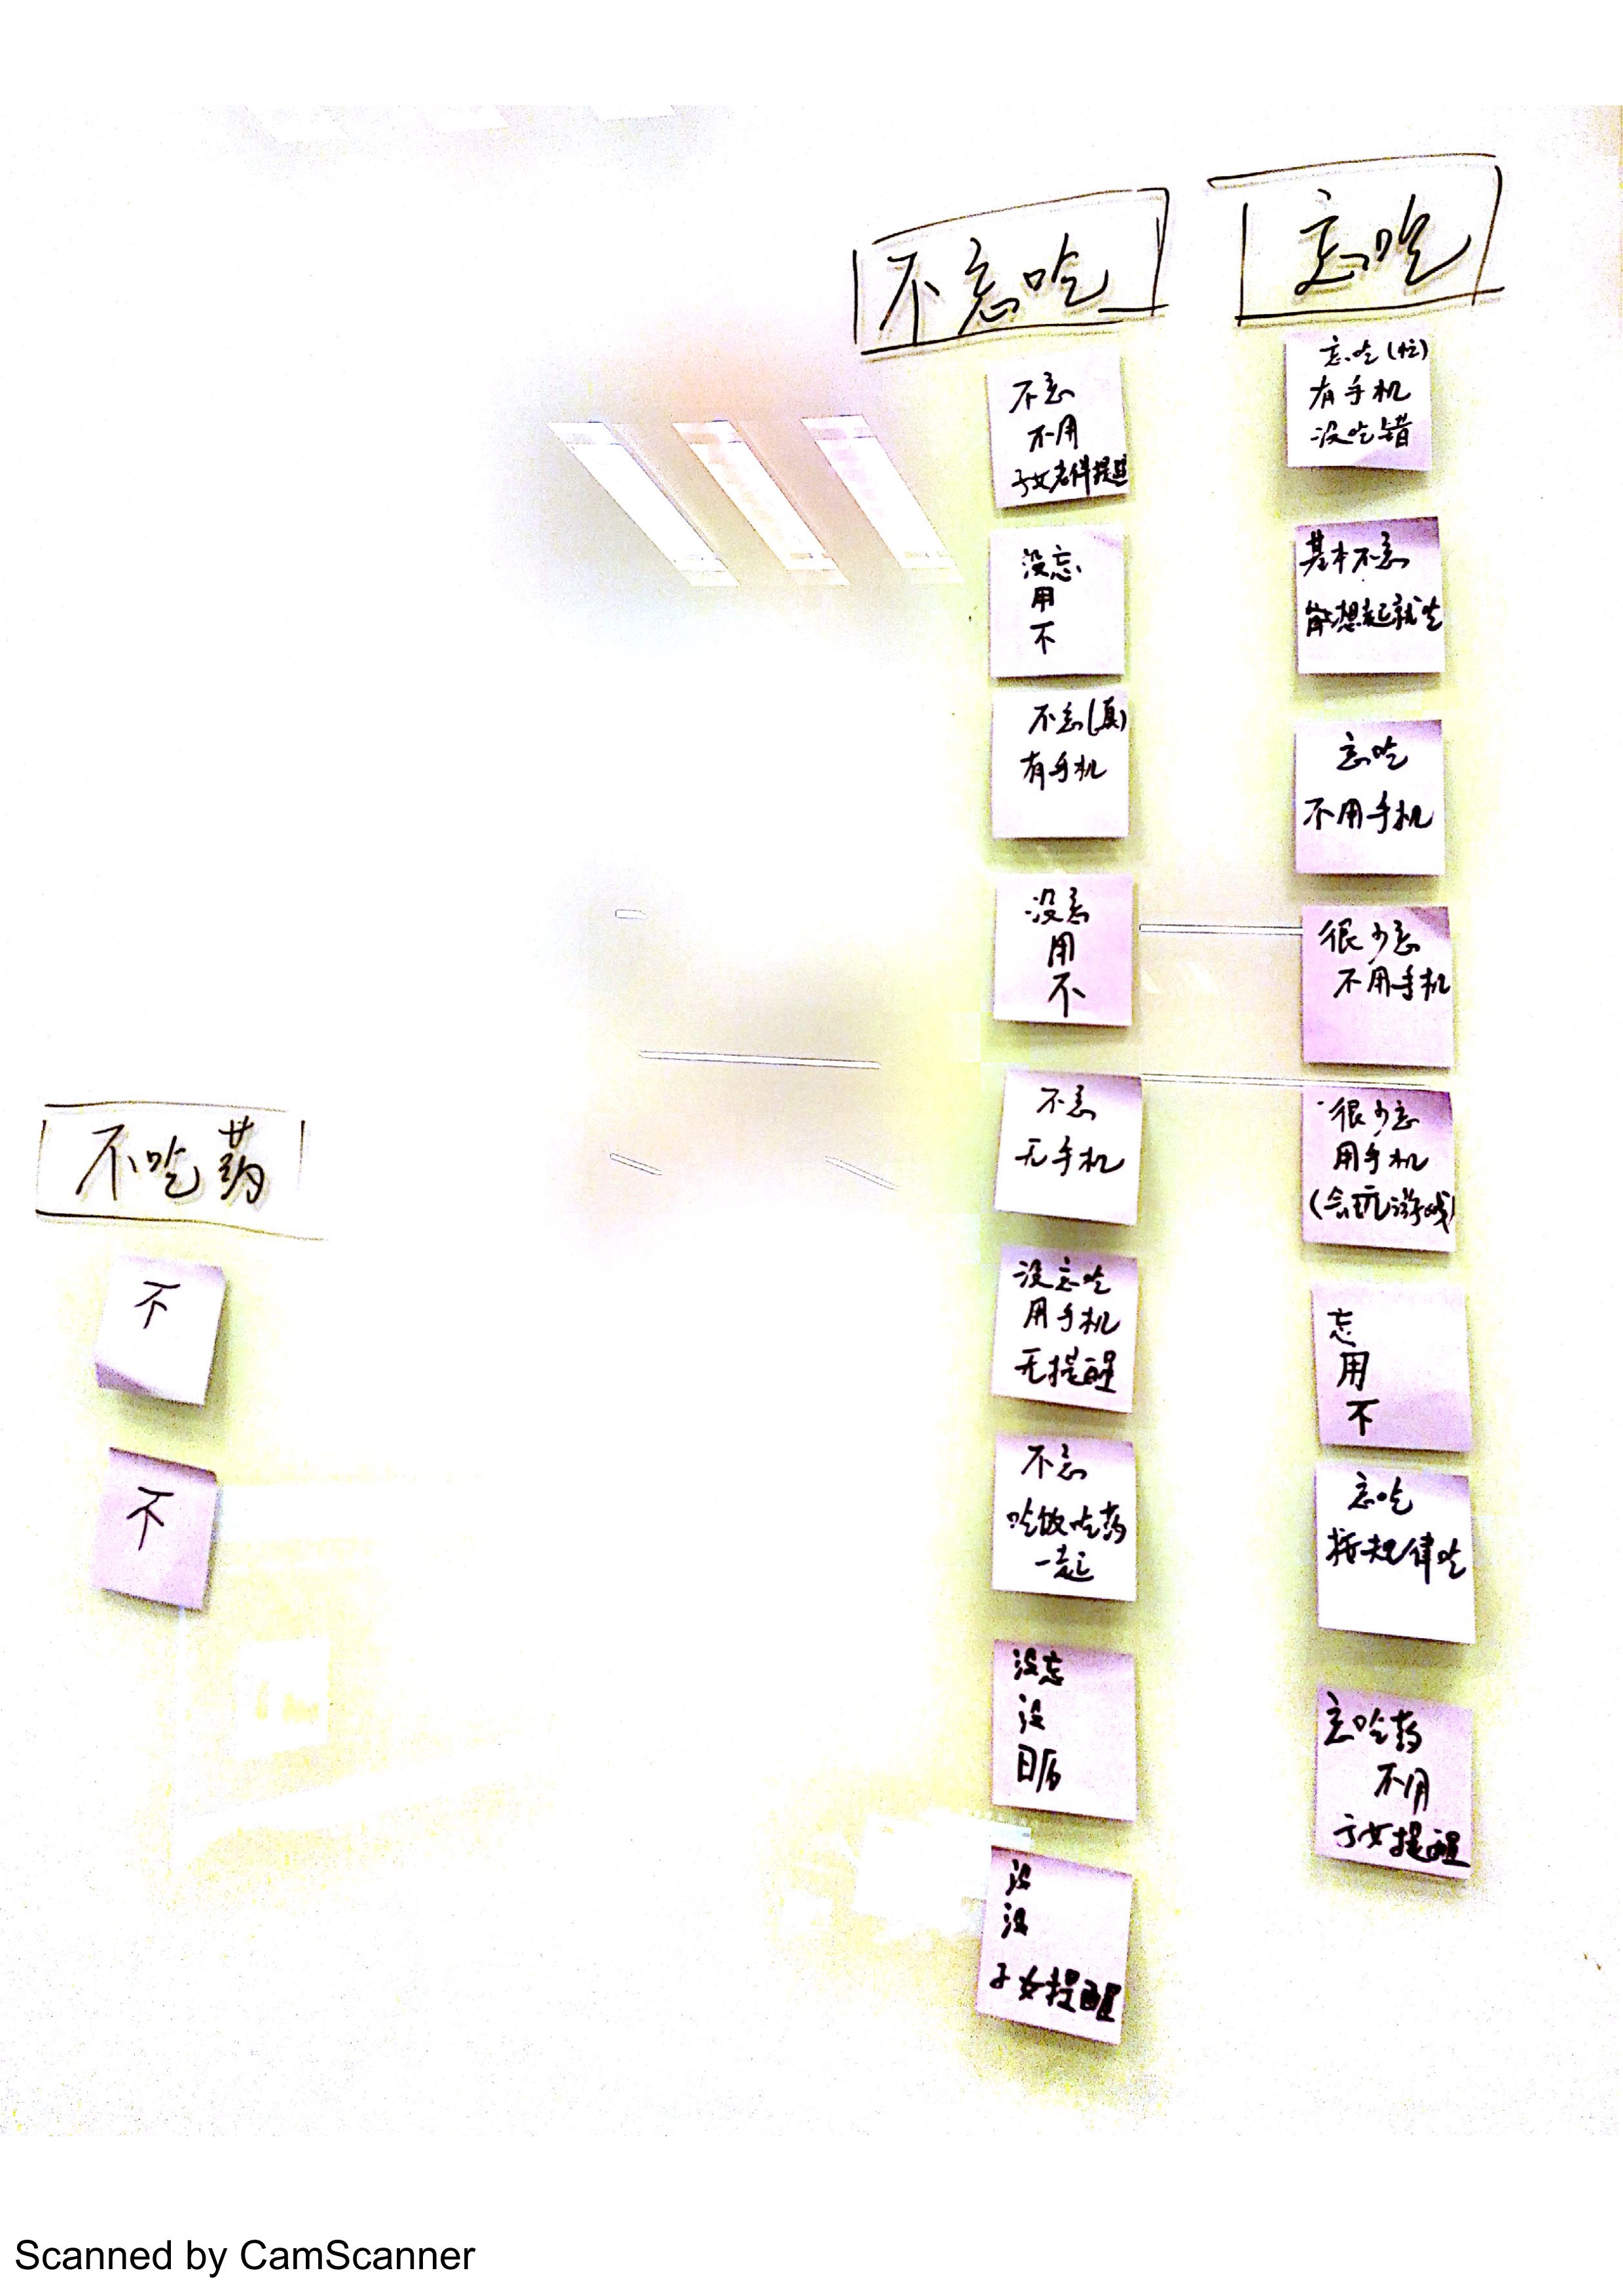 不忘吃
不忘
不用
子女老伴提醒
没忘
用
不
不忘(真)
有手机
没忘
用
不
不忘
无手机
没忘吃
用手机
无提醒
不忘
吃饭吃药
一起
没忘
没
日历
没
没
子女提醒
忘吃
忘吃(忙)
有手机
没吃错
基本不忘
能想起就吃
忘吃
不用手机
很少忘
不用手机
很少忘
用手机
(会玩游戏)
忘
用
不
忘吃
按规律吃
忘吃药
不用
子女提醒
不吃药
不
不
Scanned by CamScanner